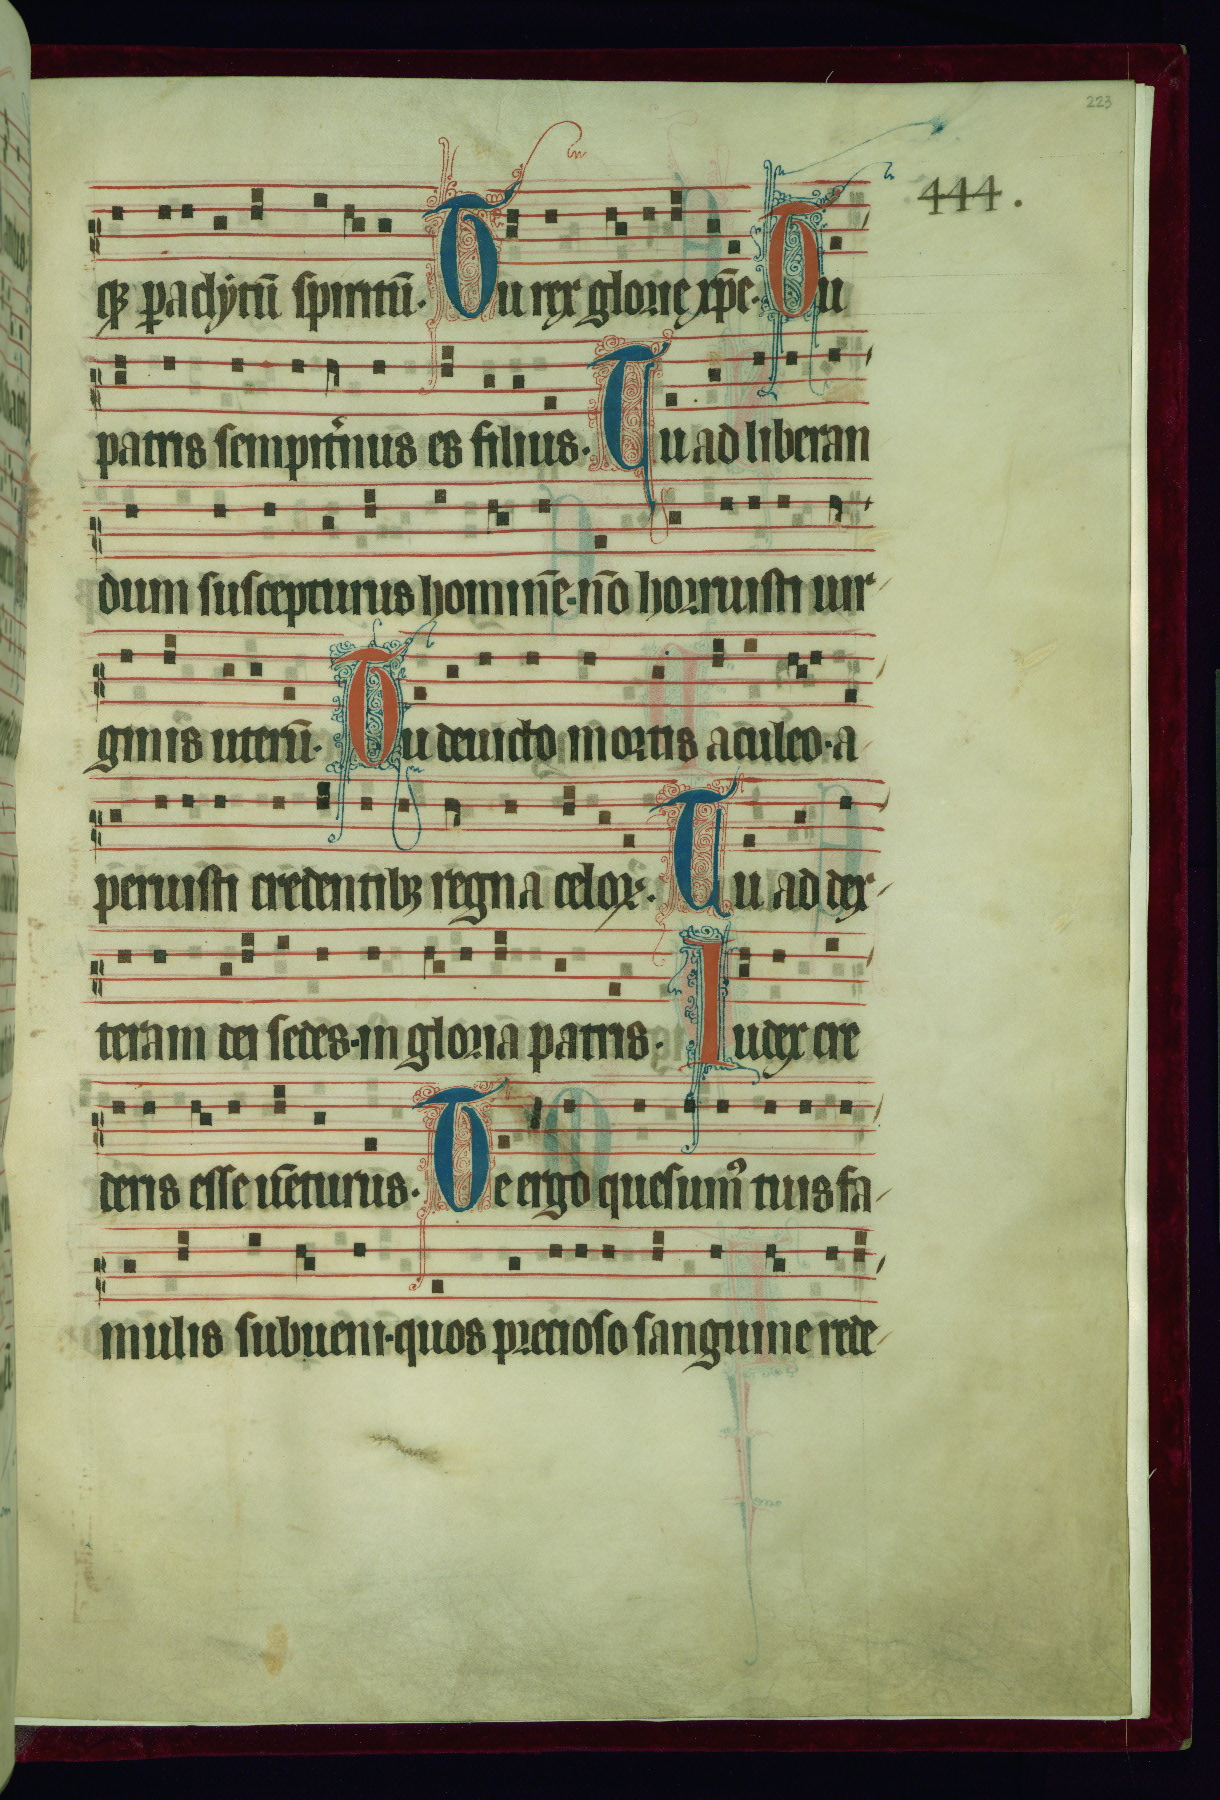 223
444.
qꝫ paclytū spiritū. Tu rex glorie xp̄e. Tu
patris sempit̾nus es filius. Tu ad liberan
dum suscepturus homin̄e. nō horruisti uir
ginis uterū. Tu deuicto mortis aculeo. a
peruisti credentibꝫ regna celoꝝ. Tu ad dex
teram dei sedes. in gloria patris. Iudex cre
deris esse uēturus. Te ergo quesumꝰ tuis fa
mulis subueni. quos precioso sanguine rede